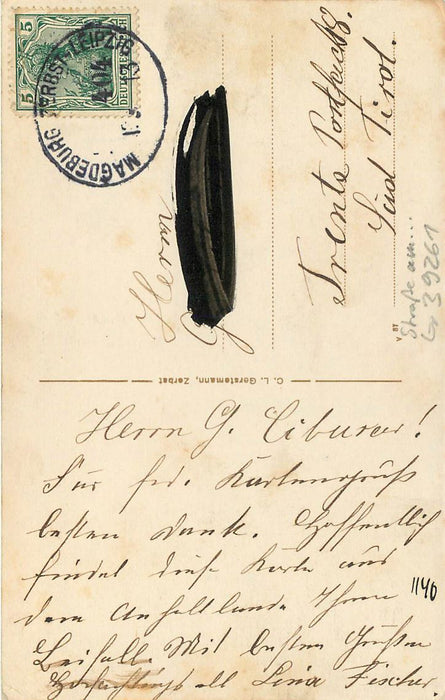 5 5
DEUTSCHES
MAGDEBURG ZERBST-LEIPZIG
404
Herrn G.
Trento Postfach 8.
Süd Tirol.
Straße am...
39261
V 87
C. L. Gerstemann, Zerbst
Herrn G. Ciburar!
Für frd. Kartengruß
besten Dank. Hoffentlich
findet diese Karte aus
dem Anhaltlande Ihren
1140
Beifall. Mit besten Grüßen
Lina Fischer.